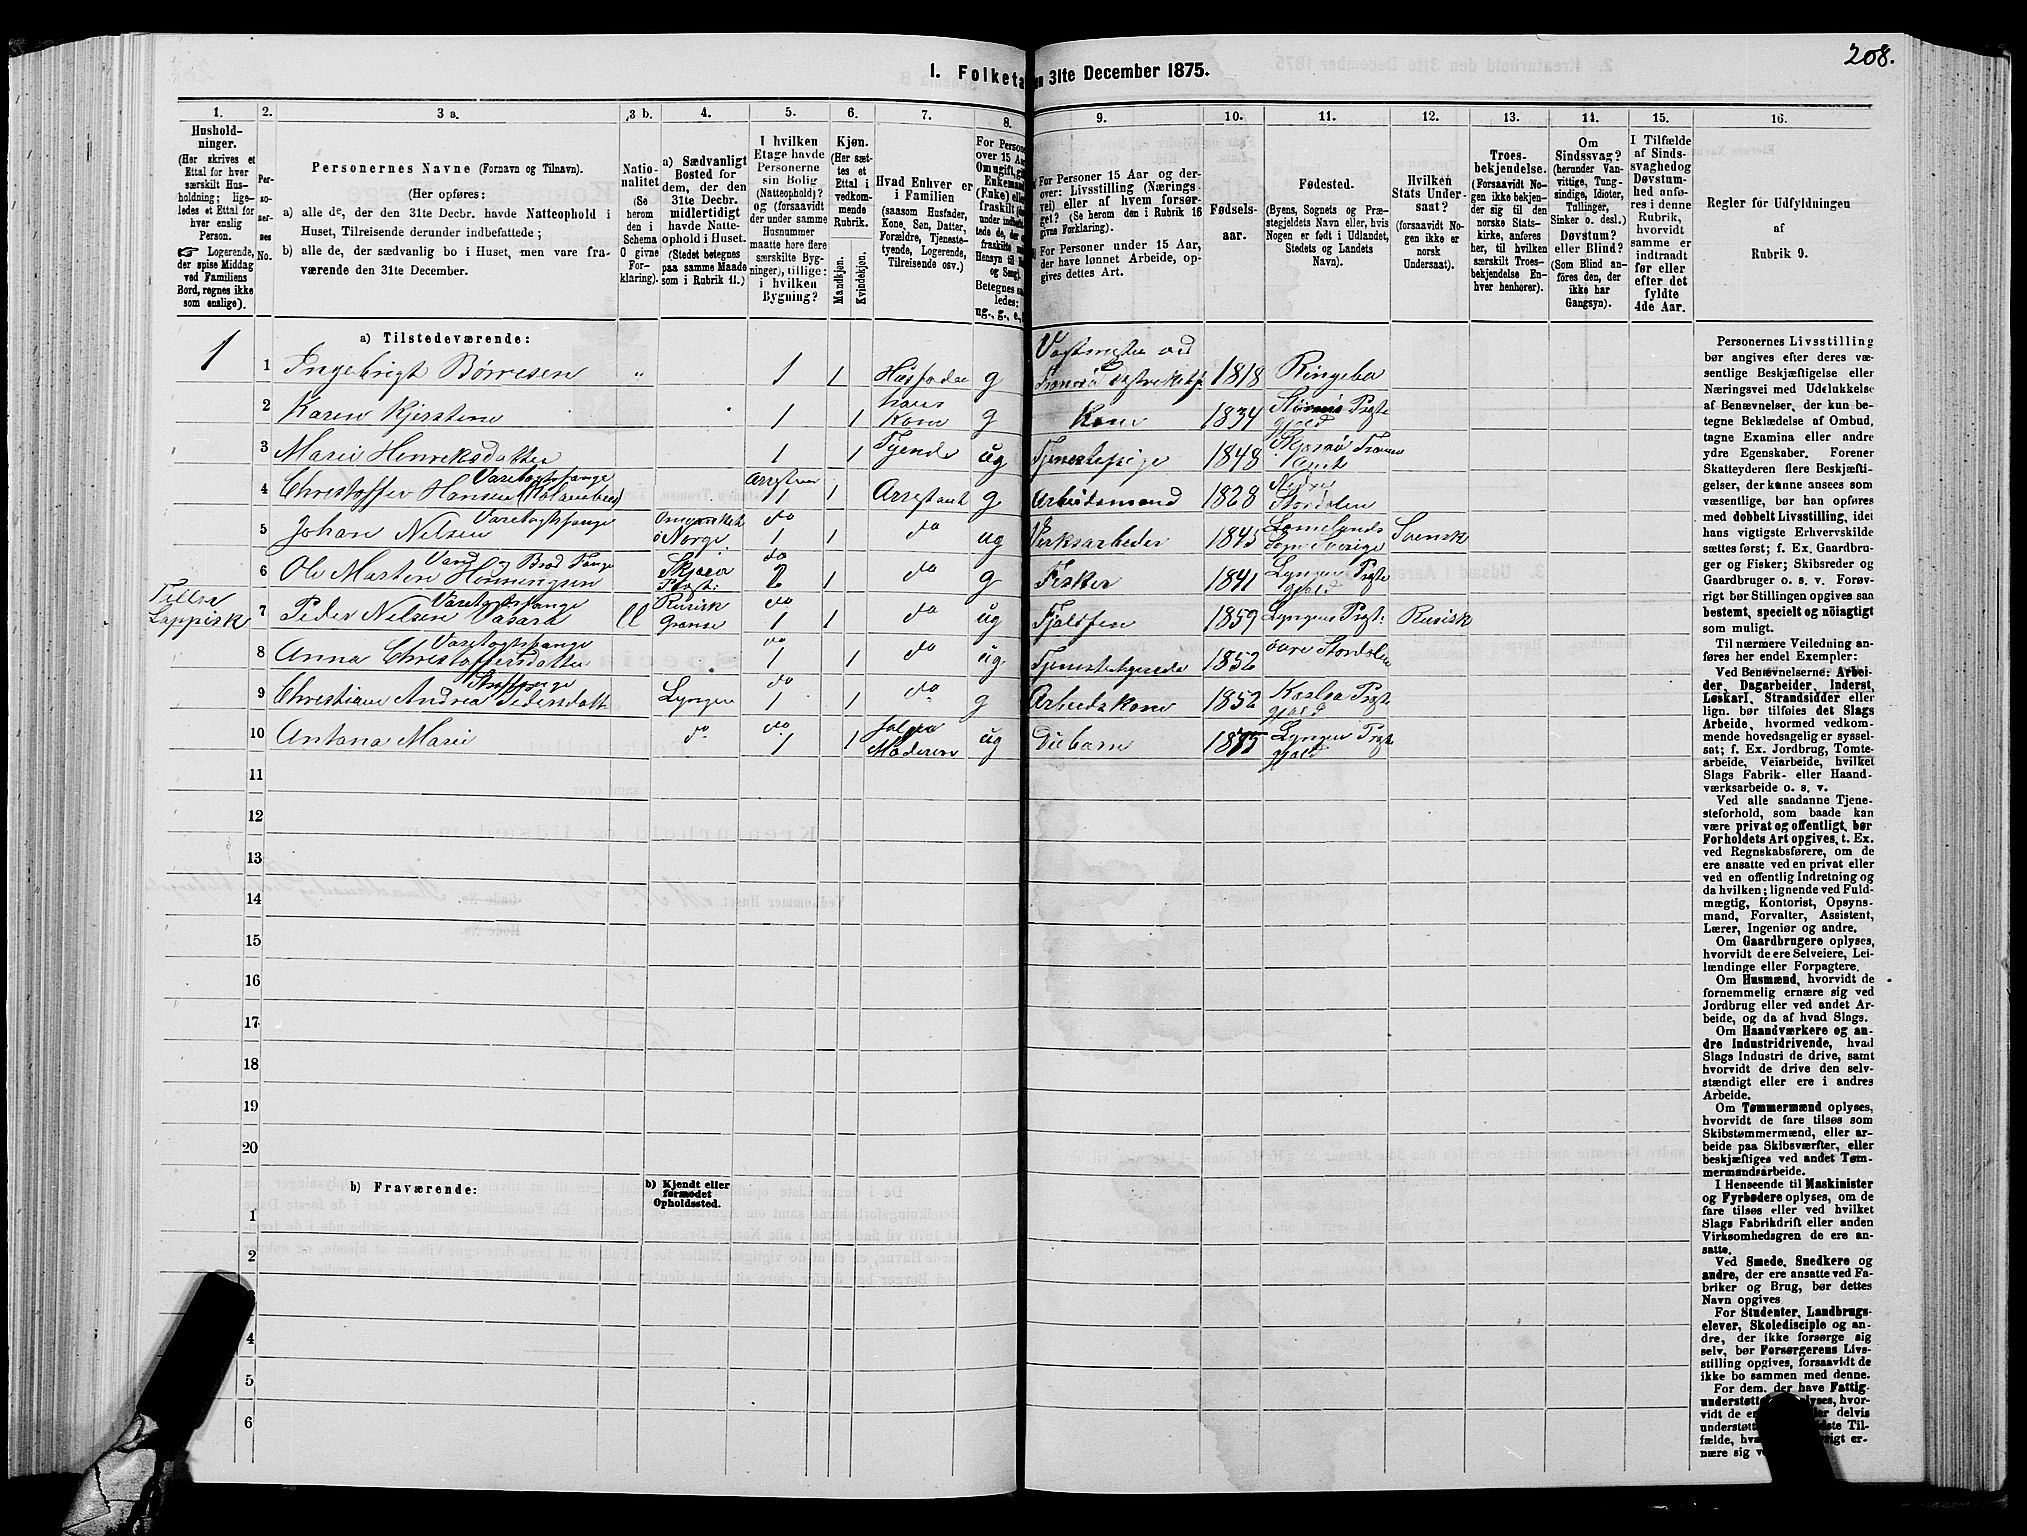 208.
1. Folketa
n 31te December 1875.
1.
Hushold-
ninger.
(Her skrives et
Ettal for hver
særskilt Hus-
holdning; lige-
ledes et Ettal for
hver enslig
Person.
☞ Logerende,
der spise Middag
ved Familiens
Bord, regnes ikke
som enslige).
2.
Per-
so-
ner-
nes
No.
3 a.
Personernes Navne (Fornavn og Tilnavn).
(Her opføres:
a) alle de, der den 31te Decbr. havde Natteophold i
Huset, Tilreisende derunder indbefattede;
b) alle de, der sædvanlig bo i Huset, men vare fra-
værende den 31te December.
3 b.
Natio-
nalitet
(Se
herom
den i
Schema
O givne
For-
klaring).
4.
a) Sædvanligt
Bosted for
dem, der den
31te Decbr.
midlertidigt
havde Natte-
ophold i Huset.
(Stedet betegnes
paa samme Maade
som i Rubrik 11.)
5.
I hvilken
Etage havde
Personerne
sin Bolig
(Natteophold)?
og (forsaavidt
der under samme
Husnummer
maatte høre flere
særskilte Byg-
ninger), tillige:
i hvilken
Bygning?
6.
Kjøn.
(Her sæt-
tes et
Ettal i
vedkom-
mende
Rubrik.
Mandkjøn.
Kvindekjøn.
7.
Hvad Enhver er
i Familien
(saasom Husfader,
Kone, Søn, Datter,
Forældre, Tjeneste-
tyende, Logerende,
Tilreisende osv.)
8.
For Persone
over 15 Aar
Om ugift, gi
Enkemand
(Enke) eller
fraskilt
9.
For Personer 15 Aar og der-
over: Livsstilling (Nærings-
vei) eller af hvem forsør-
get? (Se herom den i Rubrik 16
givne Forklaring).
For Personer under 15 Aar,
der have lønnet Arbeide, op-
gives dettes Art.
10.
Fødsels-
aar.
11.
Fødested.
(Byens, Sognets og Præ-
stegjeldets Navn eller, hvis
Nogen er født i Udlandet,
Stedets og Landets
Navn).
12.
Hvilken
Stats Under-
saat?
(forsaavidt No-
gen ikke er
norsk
Undersaat).
13.
Troes-
bekjendelse.
(Forsaavidt No-
gen ikke bekjen-
der sig til den
norske Stats-
kirke, anføres
her, til hvilken
særskilt Troes-
bekjendelse En-
hver henhører).
14.
Om
Sindssvag?
(herunder Van-
vittige, Tung-
sindige, Idioter,
Tullinger,
Sinker o. desl.)
Døvstum?
eller Blind?
(Som Blind an-
føres den, der
ikke har
Gangsyn).
15.
I Tilfælde
af Sinds-
svaghed og
Døvstum-
hed anfø-
res i denne
Rubrik,
hvorvidt
samme er
indtraadt
før eller
efter det
fyldte
4de Aar.
16.
Regler for Udfyldningen
af
Rubrik 9.
a) Tilstedeværende:
1 1 Ingebrigt Børresen " 1 1 Husfader g Vagtmester ved Tromsø Distriktsf. 1818 Ringebo
2 Karen Kjerstine 1 1 hans Kone g Kone 1834 Prgte gjeld
3 Marie Henriksdatter 1 1 Tyende ug Tjenestepige 1848 Tromsø Amt
4 Christoffer Hansen Varetægtsfange Arresten 1 1 Arrestant g Arbeidsmand 1828 Nedre Stordalen
5 Johan Nilsen Varetægtsfange Norge do 1 1 do ug Verksarbeider 1845 Sverige Svensk
6 Ole Martin Henningsen Vand og Brød Fange Skjærvø Prgst: do 2 1 do g Fisker 1841 Lyngen Prgte gjeld
Tillæg Lappisk 7 Peder Nilsen Vasara Varetægtsfange ll Rusisk Grænse do 1 1 do ug Fjeldfin 1859 Lyngens Prgt: Rusisk
8 Anna Christoffersdatter Varetægtsfange do 1 1 do ug Tjenestetyende 1852 øvre Stordalen
9 Christiane Andrea Pedersdatt Straffange Lyngen do 1 1 do g Arbeidskone 1852 Prgte gjeld
10 Antona Marie do do 1 1 følger Moderen ug Diebarn 1875 Lyngen Prgte gjeld
11
12
13
14
15
16
17
18
19
20
b) Fraværende:
b) Kjendt eller
formodet
Opholdssted.
1
2
4
5
6
Personernes Livsstilling
bør angives efter deres væ-
sentlige Beskjæftigelse eller
Næringsvei med Udelukkelse
af Benævnelser, der kun be-
tegne Beklædelse af Ombud,
tagne Examina eller andre
ydre Egenskaber. Forener
Skatteyderen flere Beskjæfti-
gelser, der kunne ansees som
væsentlige, bør han opføres
med dobbelt Livsstilling, idet
hans vigtigste Erhvervskilde
sættes først; f. Ex. Gaardbru-
ger og Fisker; Skibsreder og
Gaardbruger o. s. v. Forøv-
rigt bør Stillingen opgives saa
bestemt, specielt og nöiagtigt
som muligt.
Til nærmere Veiledning an-
føres her endel Exempler:
Ved Benævnelserne: Arbei-
der, Dagarbeider, Inderst,
Løskarl, Strandsidder eller
lign. bør tilføies det Slags
Arbeide, hvormed vedkom-
mende hovedsagelig er syssel-
sat; f. Ex. Jordbrug, Tomte-
arbeide, Veiarbeide, hvilket
Slags Fabrik- eller Haand-
værksarbeide o. s. v.
Ved alle saadanne Tjene-
steforhold, som baade kan
være privat og offentligt, bør
Forholdets Art opgives, t. Ex.
ved Regnskabsførere, om de
ere ansatte ved en privat eller
ved en offentlig Indretning og
da hvilken; lignende ved Fuld-
mægtig, Kontorist, Opsyns-
mand, Forvalter, Assistent,
Lærer, Ingeniør og andre.
Om Gaardbrugere oplyses,
hvorvidt de ere Selveiere, Lei-
lændinge eller Forpagtere.
Om Husmænd, hvorvidt de
fornemmelig ernære sig ved
Jordbrug eller ved andet Ar-
beide, og da af hvad Slags.
Om Haandværkere og an-
dre Industridrivende, hvad
Slags Industri de drive, samt
hvorvidt de drive den selv-
stændigt eller ere i andres
Arbeide.
Om Tømmermænd oplyses,
hvorvidt de fare tilsøs som
Skibstømmermænd, eller ar-
beide paa Skibsværfter, eller
beskjæftiges ved andet Tøm-
mermandsarbeide.
I Henseende til Maskinister
og Fyrbødere oplyses, om de
fare tilsøs eller ved hvilket
Slags Fabrikdrift eller anden
Virksomhedsgren de ere an-
satte.
Ved Smede, Snedkere og
andre, der ere ansatte ved Fa-
briker og Brug, bør dettes
Navn opgives
For Studenter, Landbrugs-
elever, Skoledisciple og an-
dre, der ikke forsørge sig
selv, bør Forsørgerens Livs-
stilling opgives, forsaavidt de
ikke bo sammen med denne.
For dem, der have Fattig-